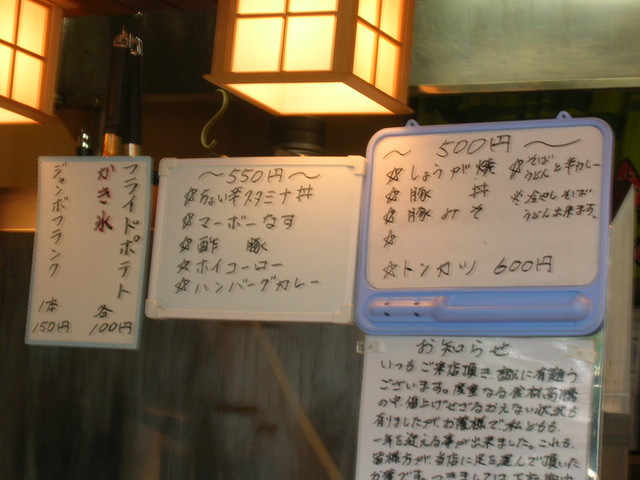 フライドポテト
かき氷
各100円
ジャンボフランク
1本150円
〜550円〜
☆ちょい辛スタミナ丼
☆マーボーなす
☆酢 豚
☆ホイコーロー
☆ハンバーグカレー
〜500円〜
☆しょうが焼
☆豚 丼
☆豚みそ
☆
☆トンカツ 600円
☆そば
うどんと半カレー
※冷やしそば
うどん出来ます。
お知らせ
いつも、ご来店頂き、誠に有難う
ございます。度重なる食材高騰
の中、値上げせざるおえない状況も
有りましたが、お客様で私どもも
一年を迎える事が出来ました。これも、
皆様方が、当店に足を運んで頂いた
お蔭です。つきましては